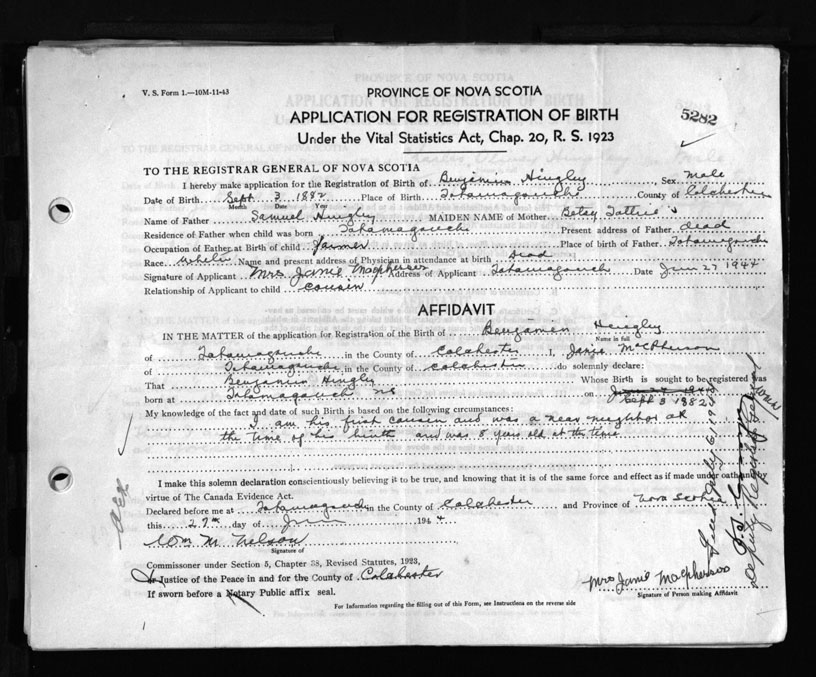 V. S. Form 1.—10M-11-43
PROVINCE OF NOVA SCOTIA
APPLICATION FOR REGISTRATION OF BIRTH
5282
Under the Vital Statistics Act, Chap. 20, R. S. 1923
TO THE REGISTRAR GENERAL OF NOVA SCOTIA
I hereby make application for the Registration of Birth of Benjamin Hingley Sex Male
Date of Birth Sept 3 1882 Place of Birth Tatamagouche County of Colchester
Month Date Year
Name of Father Samuel Hingley MAIDEN NAME of Mother Betsy Tattrie
Residence of Father when child was born Tatamagouche Present address of Father dead
Occupation of Father at Birth of child farmer Place of birth of Father Tatamagouche
Race Name and present address of Physician in attendance at birth Dead
Signature of Applicant Mrs Jamie Macpherson Address of Applicant Tatamagouch Date June 27 1944
Relationship of Applicant to child cousin
AFFIDAVIT
IN THE MATTER of the application for Registration of the Birth of Benjamen Hingley
Name in full
of Tatamagouche in the County of Colchester I, Jamie McPherson
of Tatamagouche in the County of Colchester do solemnly declare:
That Benjamin Hingley Whose Birth is sought to be registered was
born at Tatamagouch NS on Sept 3 1882
My knowledge of the fact and date of such Birth is based on the following circumstances:
I am his first cousin and was a near neighbor at
the time of his birth and was 8 years old at the time
I make this solemn declaration conscientiously believing it to be true, and knowing that it is of the same force and effect as if made under oath and by
virtue of The Canada Evidence Act.
Declared before me at Tatamagouch in the County of Colchester and Province of Nova Scotia
this 27th day of June 1944
Wm M. Nelson
Signature of
Commissioner under Section 5, Chapter 38, Revised Statutes, 1923,
or Justice of the Peace in and for the County of Colchester
If sworn before a Notary Public affix seal.
Mrs Jamie Macpherson
Signature of Person making Affidavit
For Information regarding the filling out of this Form, see Instructions on the reverse side
Deputy Registrar General